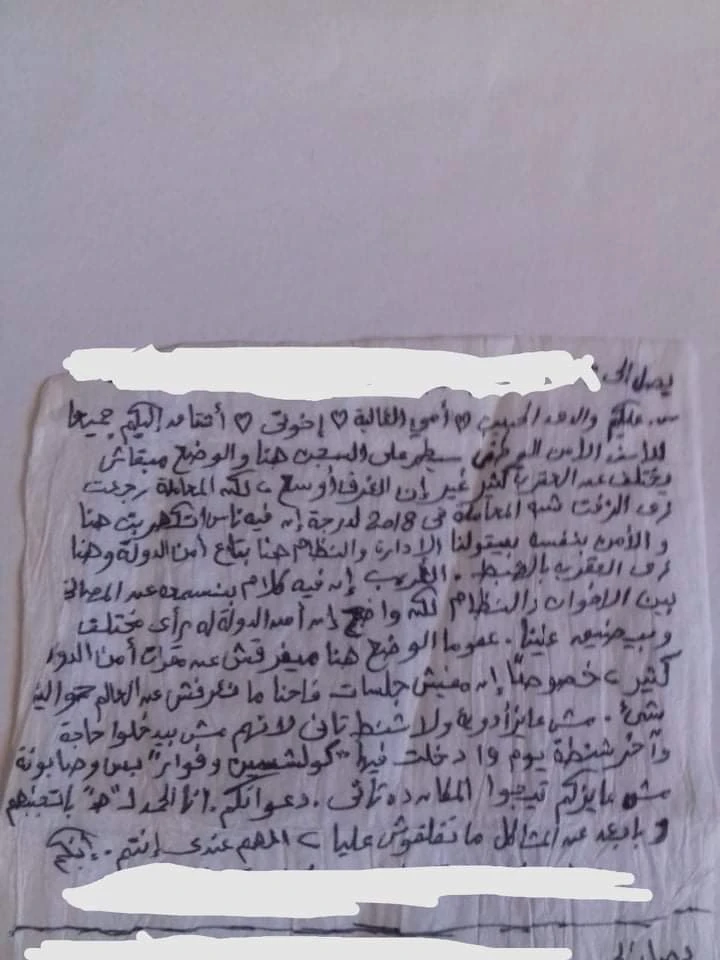 يصل إلى
س. عليكم والدى الحبيب ♡ أمي الغالية ♡ إخوتى ♡ أفتقدكم جميعا
للأسف الأمن الوطنى سيطر على السجن هنا والوضع مبقاش
يختلف عن العقرب كتير غير إن الغرف أوسع، لكن المعاملة رجعت
زى الزفت شبه المعاملة فى 2018 لدرجة إن فيه ناس اتكهربت هنا
و الأمن بنفسه بيقولنا الإدارة والنظام هنا بتاع أمن الدولة وهنا
زى العقرب بالظبط. الغريب إن فيه كلام بنسمعه عن المصالحة
بين الاخوان والنظام لكن واضح إن أمن الدولة له رأى مختلف
وبيضيق علينا. عموما الوضع هنا ميفرقش عن مقرات أمن الدولة
كتير، خصوصًا إن مفيش جلسات فاحنا ما نعرفش عن العالم حوالينا
شئ. مش عايز أدوية ولا شنط تانى لانهم مش بيدخلوا حاجة
وآخر شنطة يوم 19 دخلت فيها "كولشسين وفوار" بس وصابونة
مش عايزكم تيجوا المكان ده تانى. دعواتكم. انا الحمد لـ"ه" باتجنبهم
و بابعد عن المشاكل ما تقلقوش عليا، المهم عندى إنتم. إبنكم
يصل إلى